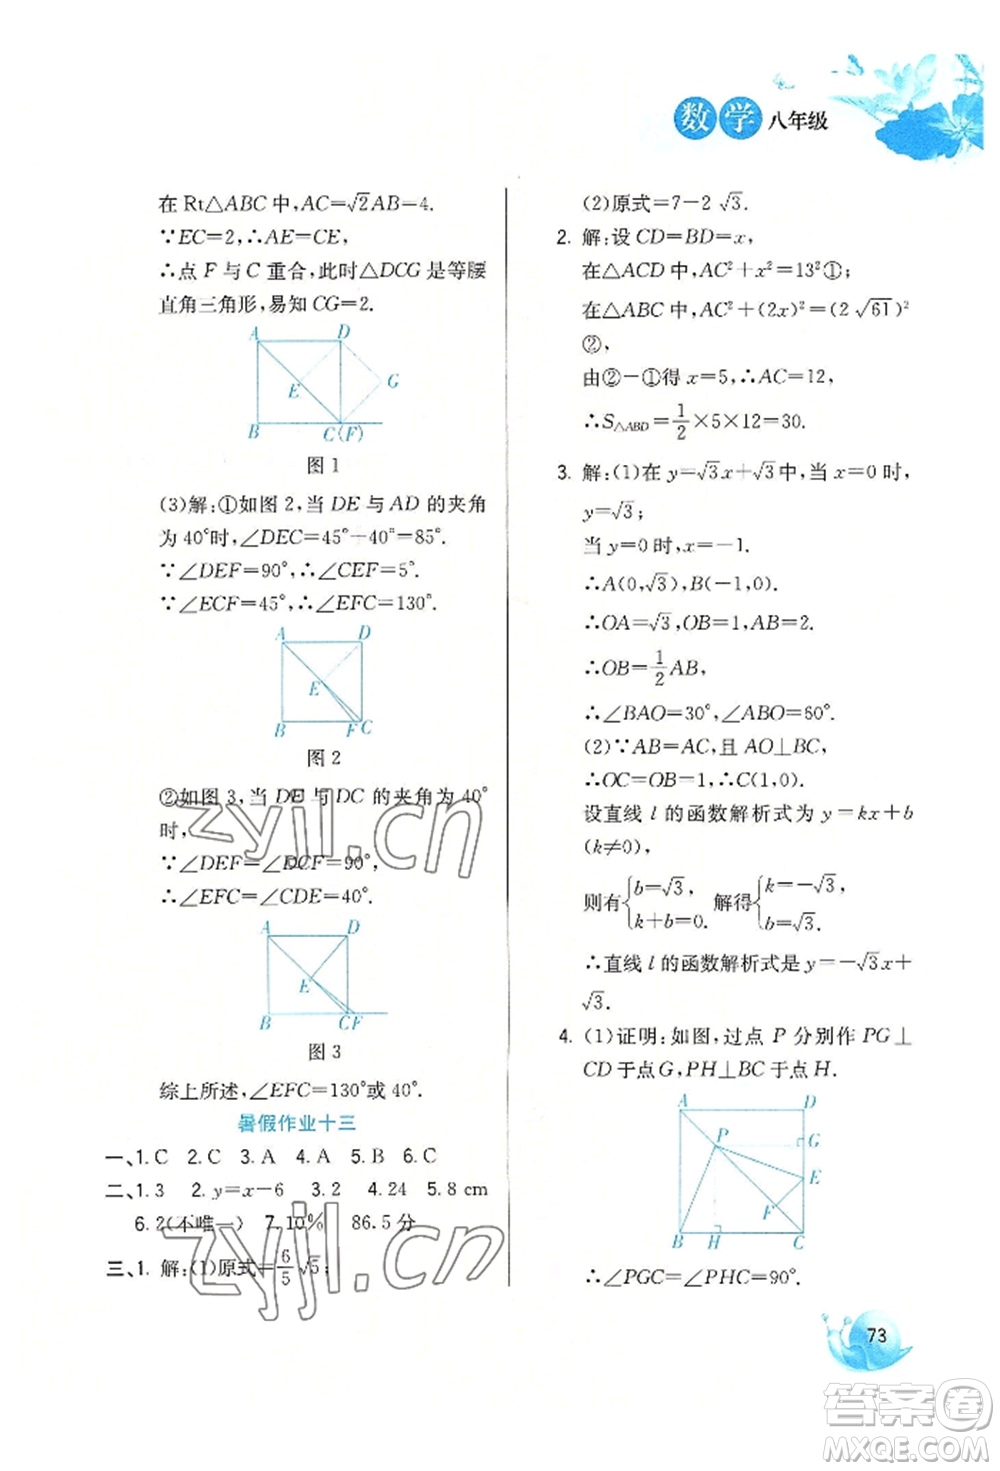 数学 八年级
在 Rt△ABC 中,AC=√2AB=4.
∵EC=2,∴AE=CE,
∴点 F 与 C 重合,此时△DCG 是等腰
直角三角形,易知 CG=2.
A D
E G
B C(F)
图 1
(3)解:①如图 2,当 DE 与 AD 的夹角
为 40°时,∠DEC=45°+40°=85°.
∵∠DEF=90°,∴∠CEF=5°.
∵∠ECF=45°,∴∠EFC=130°.
A D
E
B F C
图 2
②如图 3,当 DE 与 DC 的夹角为 40°
时,
∵∠DEF=∠DCF=90°,
∴∠EFC=∠CDE=40°.
A D
E
B C F
图 3
综上所述,∠EFC=130°或 40°.
暑假作业十三
一、1.C 2.C 3.A 4.A 5.B 6.C
二、1.3 2.y=x-6 3.2 4.24 5.8 cm
6.2(不唯一) 7.10% 86.5 分
三、1. 解:(1)原式=6/5√5;
(2)原式=7-2√3.
2. 解:设 CD=BD=x,
在△ACD 中,AC²+x²=13²①;
在△ABC 中,AC²+(2x)²=(2√61)²
②,
由②-①得 x=5,∴AC=12,
∴S△ABD=1/2×5×12=30.
3. 解:(1)在 y=√3x+√3中,当 x=0 时,
y=√3;
当 y=0 时,x=-1.
∴A(0,√3),B(-1,0).
∴OA=√3,OB=1,AB=2.
∴OB=1/2AB,
∴∠BAO=30°,∠ABO=60°.
(2)∵AB=AC,且 AO⊥BC,
∴OC=OB=1,∴C(1,0).
设直线 l 的函数解析式为 y=kx+b
(k≠0),
则有{b=√3, k+b=0. 解得{k=-√3, b=√3.
∴直线 l 的函数解析式是 y=-√3x+
√3.
4. (1)证明:如图,过点 P 分别作 PG⊥
CD 于点 G,PH⊥BC 于点 H.
A D
P G
E
F
B H C
∴∠PGC=∠PHC=90°.
73
zyjl.cn
zyjl.cn
答案圈
MXQE.COM